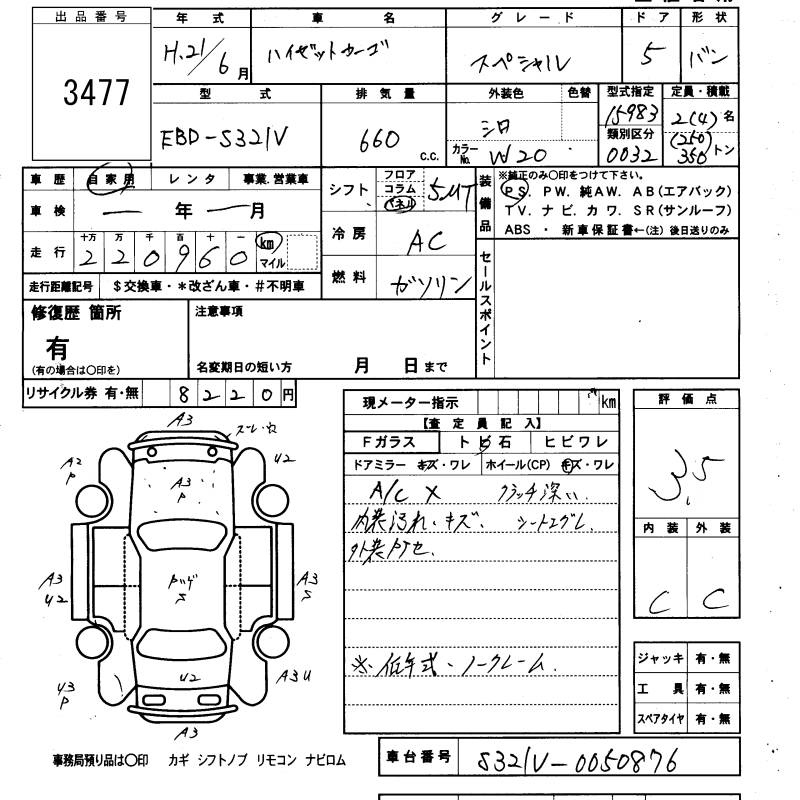 出品番号 年式 車名 グレード ドア 形状
3477 H.21/6月 ハイゼットカーゴ スペシャル 5 バン
型式 排気量 外装色 色替 型式指定 定員・積載
EBD-S321V 660 c.c. シロ 15983 2(4)名
カラーNo. W20 類別区分 0032 (250) 350 トン
車歴 自家用 レンタ 事業.営業車 シフト フロア コラム パネル 5MT 装備品 ※純正のみ〇印をつけて下さい。
PS. PW. 純AW. AB(エアバック)
車検 ー年ー月 TV. ナビ. カワ. SR(サンルーフ)
冷房 AC ABS ・ 新車保証書←(注)後日送りのみ
走行 十万 万 千 百 十 一 km マイル
2 2 0 9 6 0
燃料 ガソリン セールスポイント
走行距離記号 $交換車・*改ざん車・#不明車
修復歴 箇所 注意事項
有
(有の場合は〇印を) 名変期日の短い方 月 日まで
リサイクル券 有・無 8 2 2 0 円
現メーター指示 km 評価点
【査定員記入】 3.5
Fガラス トビ石 ヒビワレ
ドアミラー キズ・ワレ ホイール(CP) キズ・ワレ
A/C × クラッチ深い
内装汚れ・キズ. シートエグレ.
外装 内装 外装
C C
※低年式・ノークレーム.
ジャッキ 有・無
工具 有・無
スペアタイヤ 有・無
A3
A2 P U2
A3 P
A3 U2 S A3 S
U3 P U2 A3 U
A3
事務局預り品は〇印 カギ シフトノブ リモコン ナビロム
車台番号 S321V-0050876